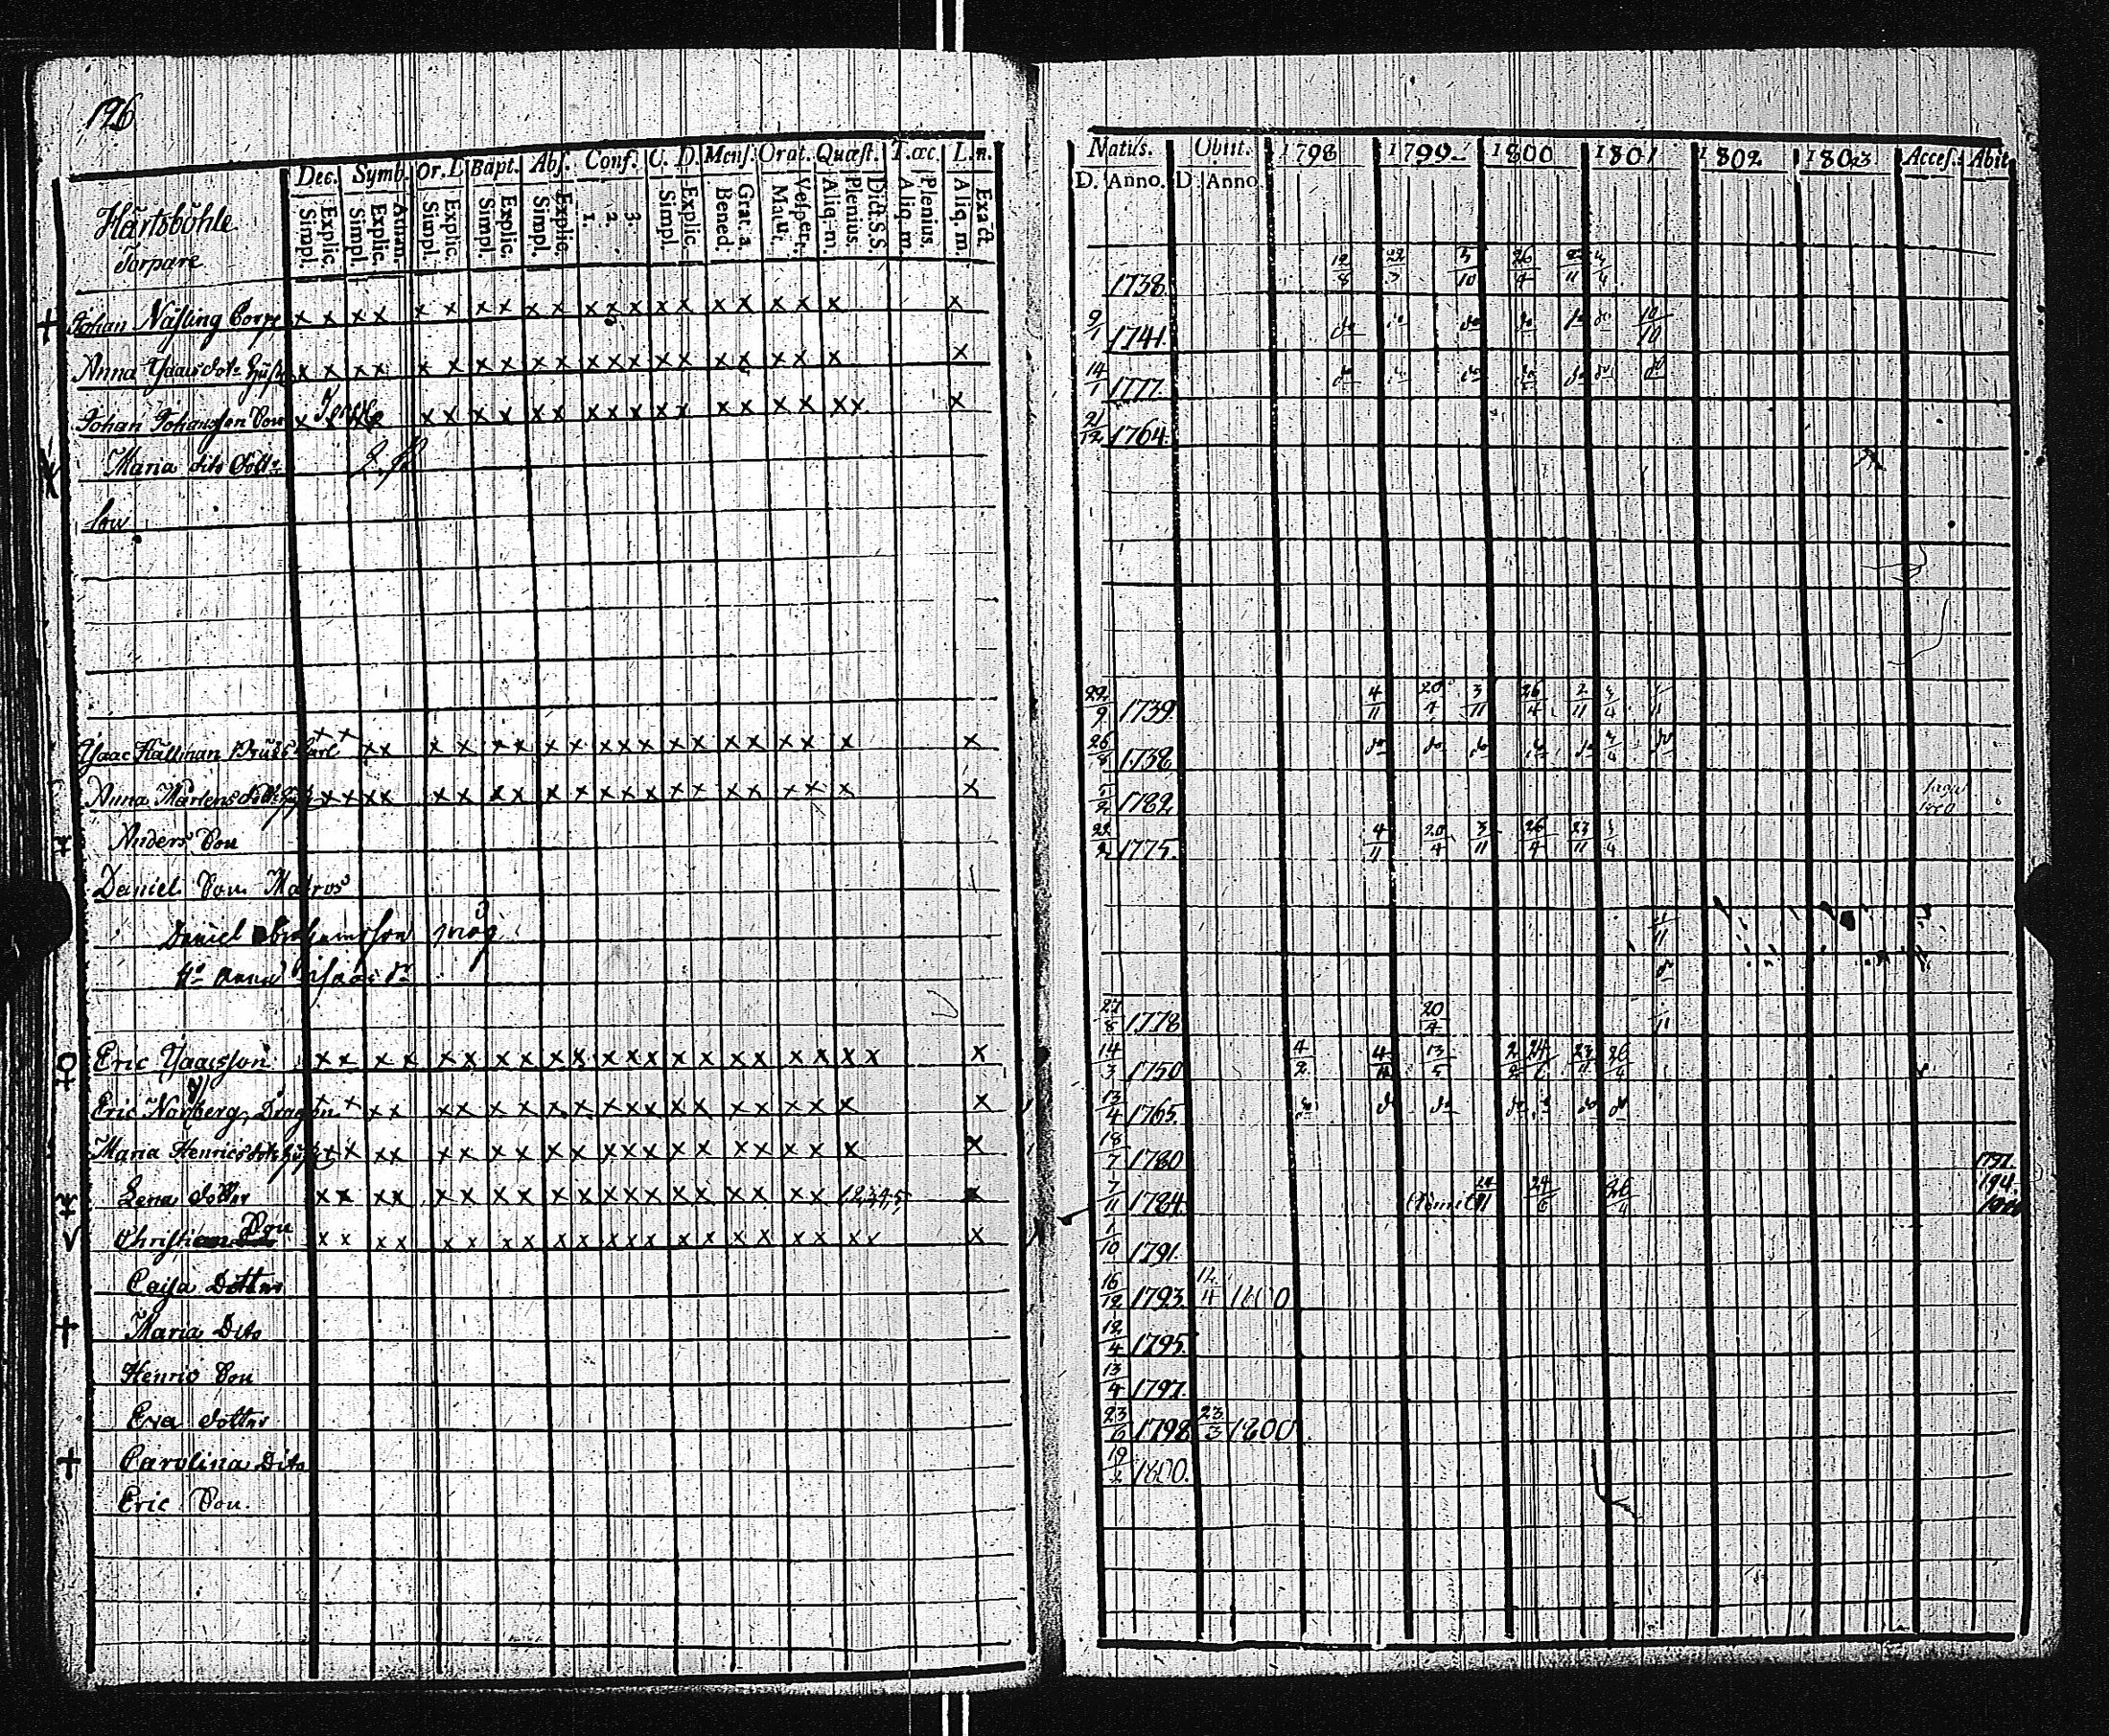 126
Dec. Symb. Or. D Bapt. Abs. Conf. C. D. Mens. Orat. Quæst. T. œc. L. n.
Simpl. Explic. Simpl. Explic. Athan. Simpl. Explic. Simpl. Explic. Simpl. Explic. 1. 2. 3. Simpl. Explic. Bened. Grat. a. Matut. Vesper. Aliq. m. Plenius. Dict. S.S. Aliq. m. Plenius. Aliq. m. Exact.
Hårtsböhle
Torpare
Johan Näsling Corpr x x x x x x x x x x x x x x x x x x x x x
Anna Isaacsdotr Hust x x x x x x x x x x x x x x x x x x x x x
Johan Johansson Son x x x x x x x x x x x x x x x x x x x x
Maria dito Dottr
Low
Isaac Hällman Bruks Karl x x x x x x x x x x x x x x x x x x x x x
Anna Mårtensdottr x x x x x x x x x x x x x x x x x x x x
Anders Son
Daniel Son Matros
Daniel Abrahamsson måg
Hu Anna Isaacs dr
Eric Isacsson x x x x x x x x x x x x x x x x x x x x x x
Eric Norberg, Dragon x x x x x x x x x x x x x x x x x x x x x
Maria Henricsdotr Hust x x x x x x x x x x x x x x x x x x x x
Lena dotter x x x x x x x x x x x x x x x x x x x 1.2.3.4.5. x
Christian Son x x x x x x x x x x x x x x x x x x x x x x
Caisa Dotter
Maria Dito
Henric Son
Eva dotter
Carolina Dito
Eric Son
Natus. Obiit. 1798 1799 1800 1801 1802 1803 Acces. Abiit
D. Anno. D. Anno.
1738. 12/8 22/3 5/10 26/4
9/1 1741. do do do do do do 10/10
14/1 1777. do do do do do do do
21/12 1764.
22/9 1739. 4/11 20/4 3/11 26/4 2/11 3/4
26/8 1738 do do do do do 3/4 do
1782
22/2 1775. 4/11 20/4 3/11 26/4 23/11 3/4
do
27/8 1778 20/4
14/3 1750 4/2 4/11 13/5 24/6 23/11 26/4
13/4 1765. do do do do do do do
18/7 1780 1791.
7/11 1784. 24/11 24/6 26/4 194.
1/10 1791.
16/12 1793. 1800
12/4 1795.
13/4 1797.
23/6 1798 23/3 1800
19/2 1800.